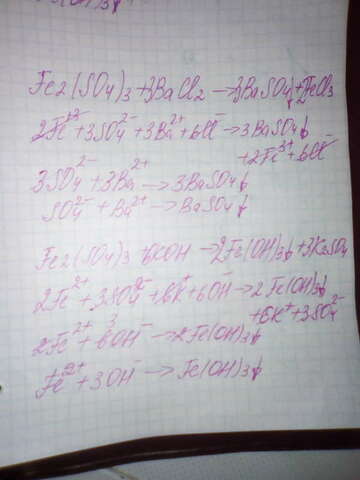 Fe2(SO4)3 + 3BaCl2 → 3BaSO4↓ + 2FeCl3
2Fe³⁺ + 3SO4²⁻ + 3Ba²⁺ + 6Cl⁻ → 3BaSO4↓
+ 2Fe³⁺ + 6Cl⁻
3SO4²⁻ + 3Ba²⁺ → 3BaSO4↓
SO4²⁻ + Ba²⁺ → BaSO4↓
Fe2(SO4)3 + 6KOH → 2Fe(OH)3↓ + 3K2SO4
2Fe²⁺ + 3SO4²⁻ + 6K⁺ + 6OH⁻ → 2Fe(OH)3↓
+ 6K⁺ + 3SO4²⁻
2Fe²⁺ + 6OH⁻ → 2Fe(OH)3↓
+ 3OH⁻ → Fe(OH)3↓